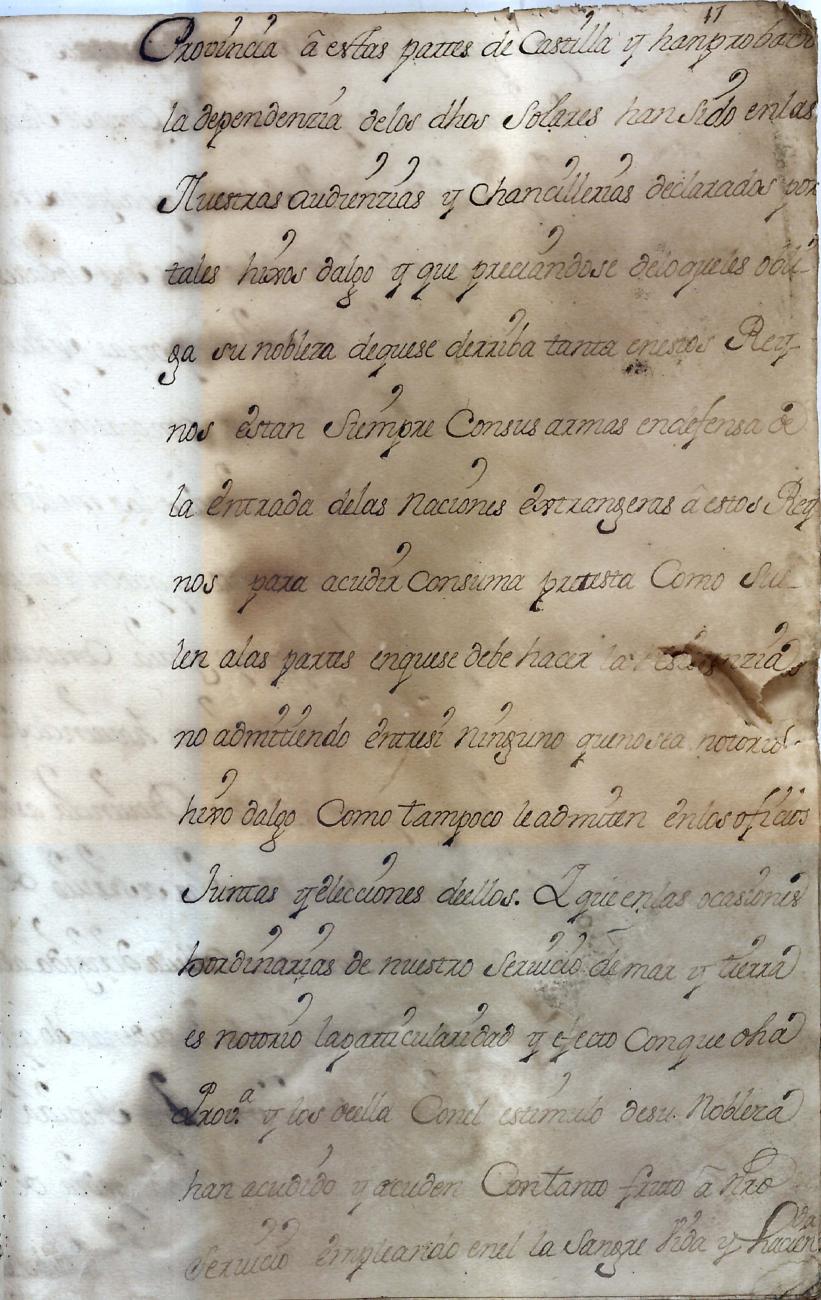 17
Provincia â estas partes de Castilla y han probado
la dependenzia de los dhos Solares han sido en las
Nuestras audienzias y Chancillerias declarados por
tales hixos dalgo y que preciandose de lo que les obli-
ga su nobleza de que se derriba tanta en estos Rey-
nos estan Siempre Con sus armas en defensa de
la entrada de las Naciones extrangeras â estos Rey
nos para acudir Con suma presteza Como Sue-
len a las partes en que se debe hacer la resistenzia
no admitiendo entre si ninguno que no sea notorio
hixo dalgo Como tampoco le admiten en los oficios
Juntas y elecciones de ellos. Y que en las ocasiones
hordinarias de nuestro Servicio de mar y tierra
es notorio la particularidad y efecto Con que dha
Prov.ª y los de ella Con el estimulo de su Nobleza
han acudido y acuden Con tanto fruto â nro
Servicio empleando en el la Sangre Vida y hacien
da